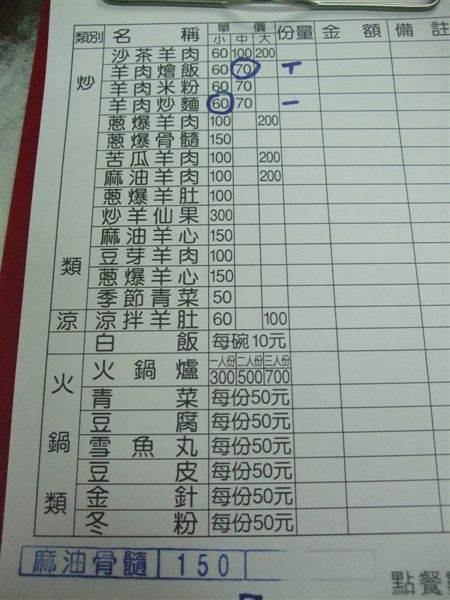 類別 名稱 單價 小 中 大 份量 金額 備註
炒類
沙茶羊肉 60 100 200
羊肉燴飯 60 70 T
羊肉米粉 60 70
羊肉炒麵 60 70 一
蔥爆羊肉 100 200
蔥爆骨髓 150
苦瓜羊肉 100 200
麻油羊肉 100 200
蔥爆羊肚 100
炒羊仙果 300
麻油羊心 150
豆芽羊肉 100
蔥爆羊心 150
季節青菜 50
涼 涼拌羊肚 60 100
白飯 每碗10元
火鍋類
火鍋爐 一人份 二人份 三人份
300 500 700
青菜 每份50元
豆腐 每份50元
雪魚丸 每份50元
豆皮 每份50元
金針 每份50元
冬粉 每份50元
麻油骨髓 150
點餐